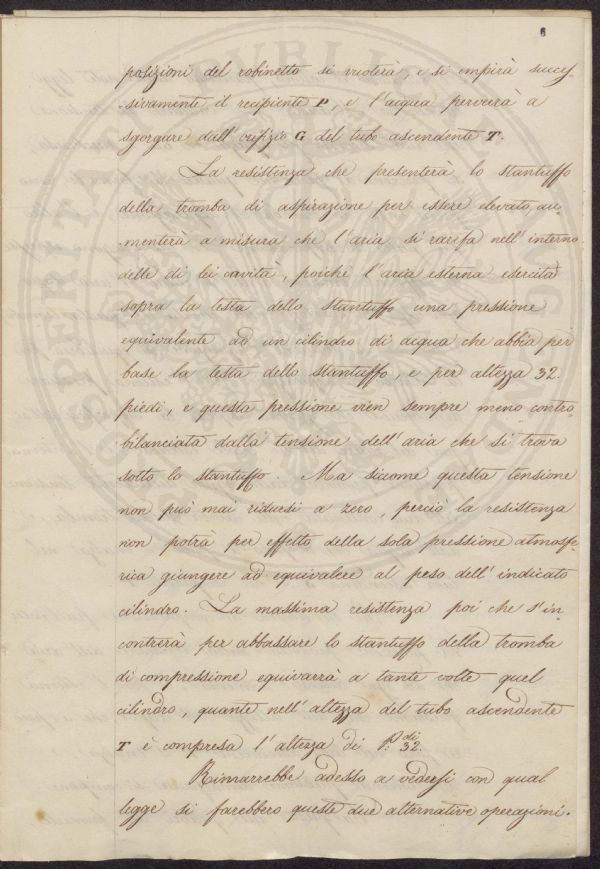 6
posizioni del robinetto si vuoterà, e si empirà succes-
-sivamente il recipiente P, e l'acqua perverrà a
sgorgare dall'orifizio G del tubo ascendente T.
La resistenza che presenterà lo stantuffo
della tromba di aspirazione per essere elevato, au-
-menterà a misura che l'aria si rarefà nell'interno
delle di lei cavità, poichè l'aria esterna esercita
sopra la testa dello stantuffo una pressione
equivalente ad un cilindro di acqua che abbia per
base la testa dello stantuffo, e per altezza 32.
piedi, e questa pressione vien sempre meno contro-
bilanciata dalla tensione dell'aria che si trova
sotto lo stantuffo. Ma siccome questa tensione
non può mai ridursi a zero, perciò la resistenza
non potrà per effetto della sola pressione atmosfe-
rica giungere ad equivalere al peso dell'indicato
cilindro. La massima resistenza poi che s'in-
contrerà per abbassare lo stantuffo della tromba
di compressione equivarrà a tante volte quel
cilindro, quante nell'altezza del tubo ascendente
T è compresa l'altezza di P.di 32.
Rimarrebbe adesso a vedersi con qual
legge si farebbero queste due alternative operazioni.